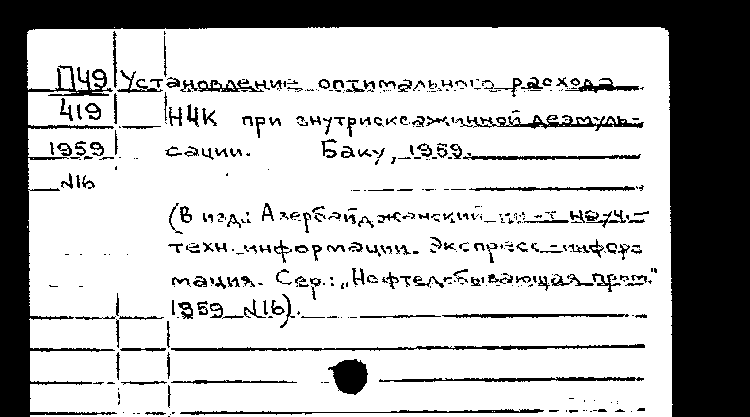 П49 Установление оптимального расхода
419 НЧК при внутрискважинной деэмуль-
1959 сации. Баку, 1959.
№16
(В изд.: Азербайджанский ин-т науч.-
техн. информации. Экспресс-инфор-
мация. Сер.: „Нефтедобывающая пром."
1959 №16).